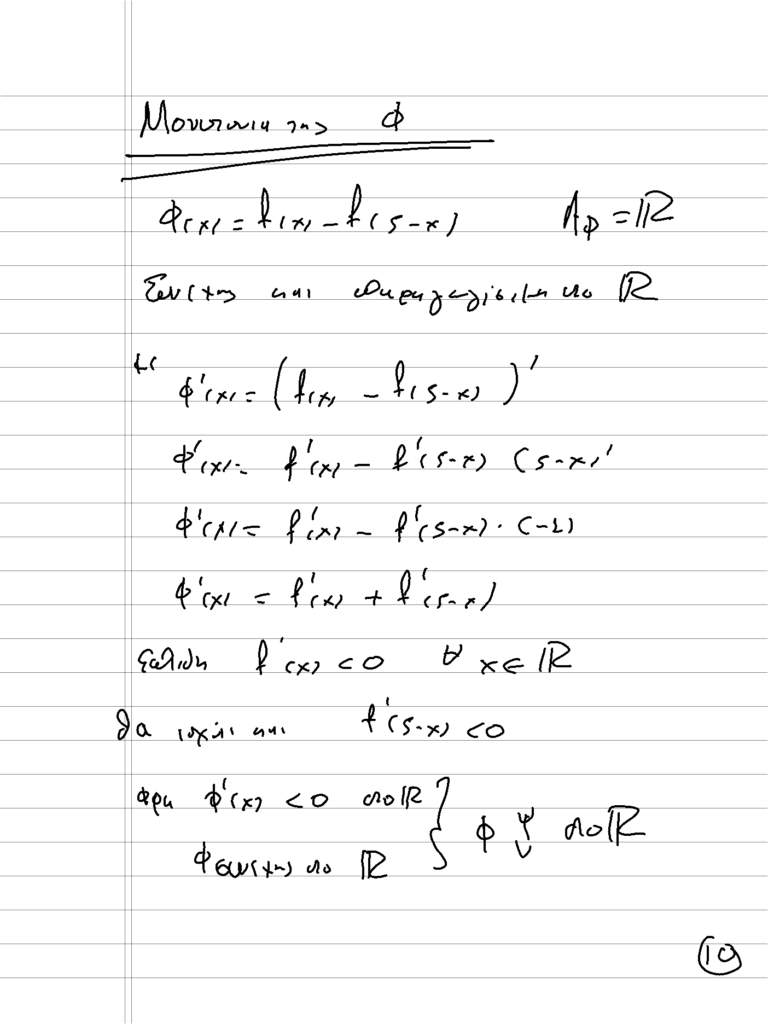 Μονοτονια της Φ
Φ(x) = f(x) - f(5-x) Α_Φ = ℝ
Συνεχης και παραγωγισιμη στο ℝ
με
Φ'(x) = (f(x) - f(5-x))'
Φ'(x) = f'(x) - f'(5-x) (5-x)'
Φ'(x) = f'(x) - f'(5-x) · (-1)
Φ'(x) = f'(x) + f'(5-x)
επειδη f'(x) < 0 ∀ x ∈ ℝ
θα ισχυει και f'(5-x) < 0
αρα Φ'(x) < 0 στο ℝ
Φ συνεχης στο ℝ } Φ ↓ στο ℝ
10